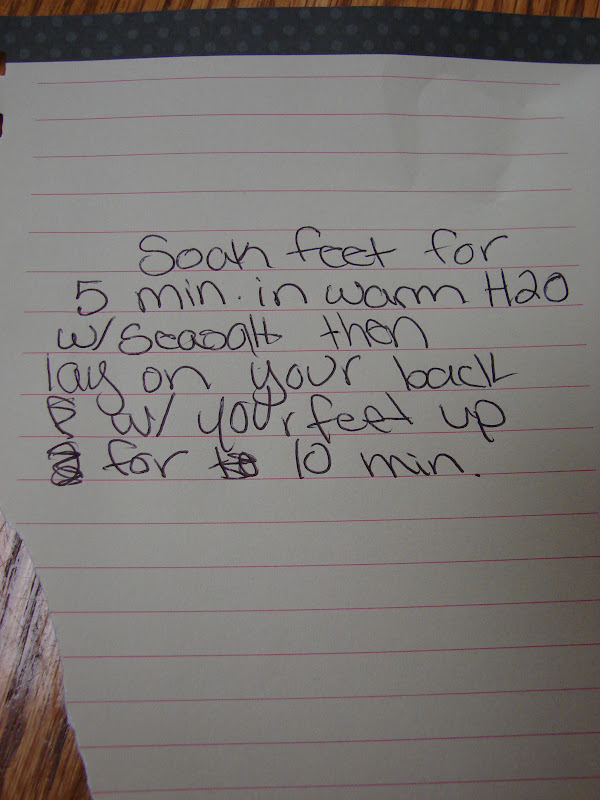 Soak feet for
5 min. in warm H2O
w/ seasalt then
lay on your back
w/ your feet up
for 10 min.